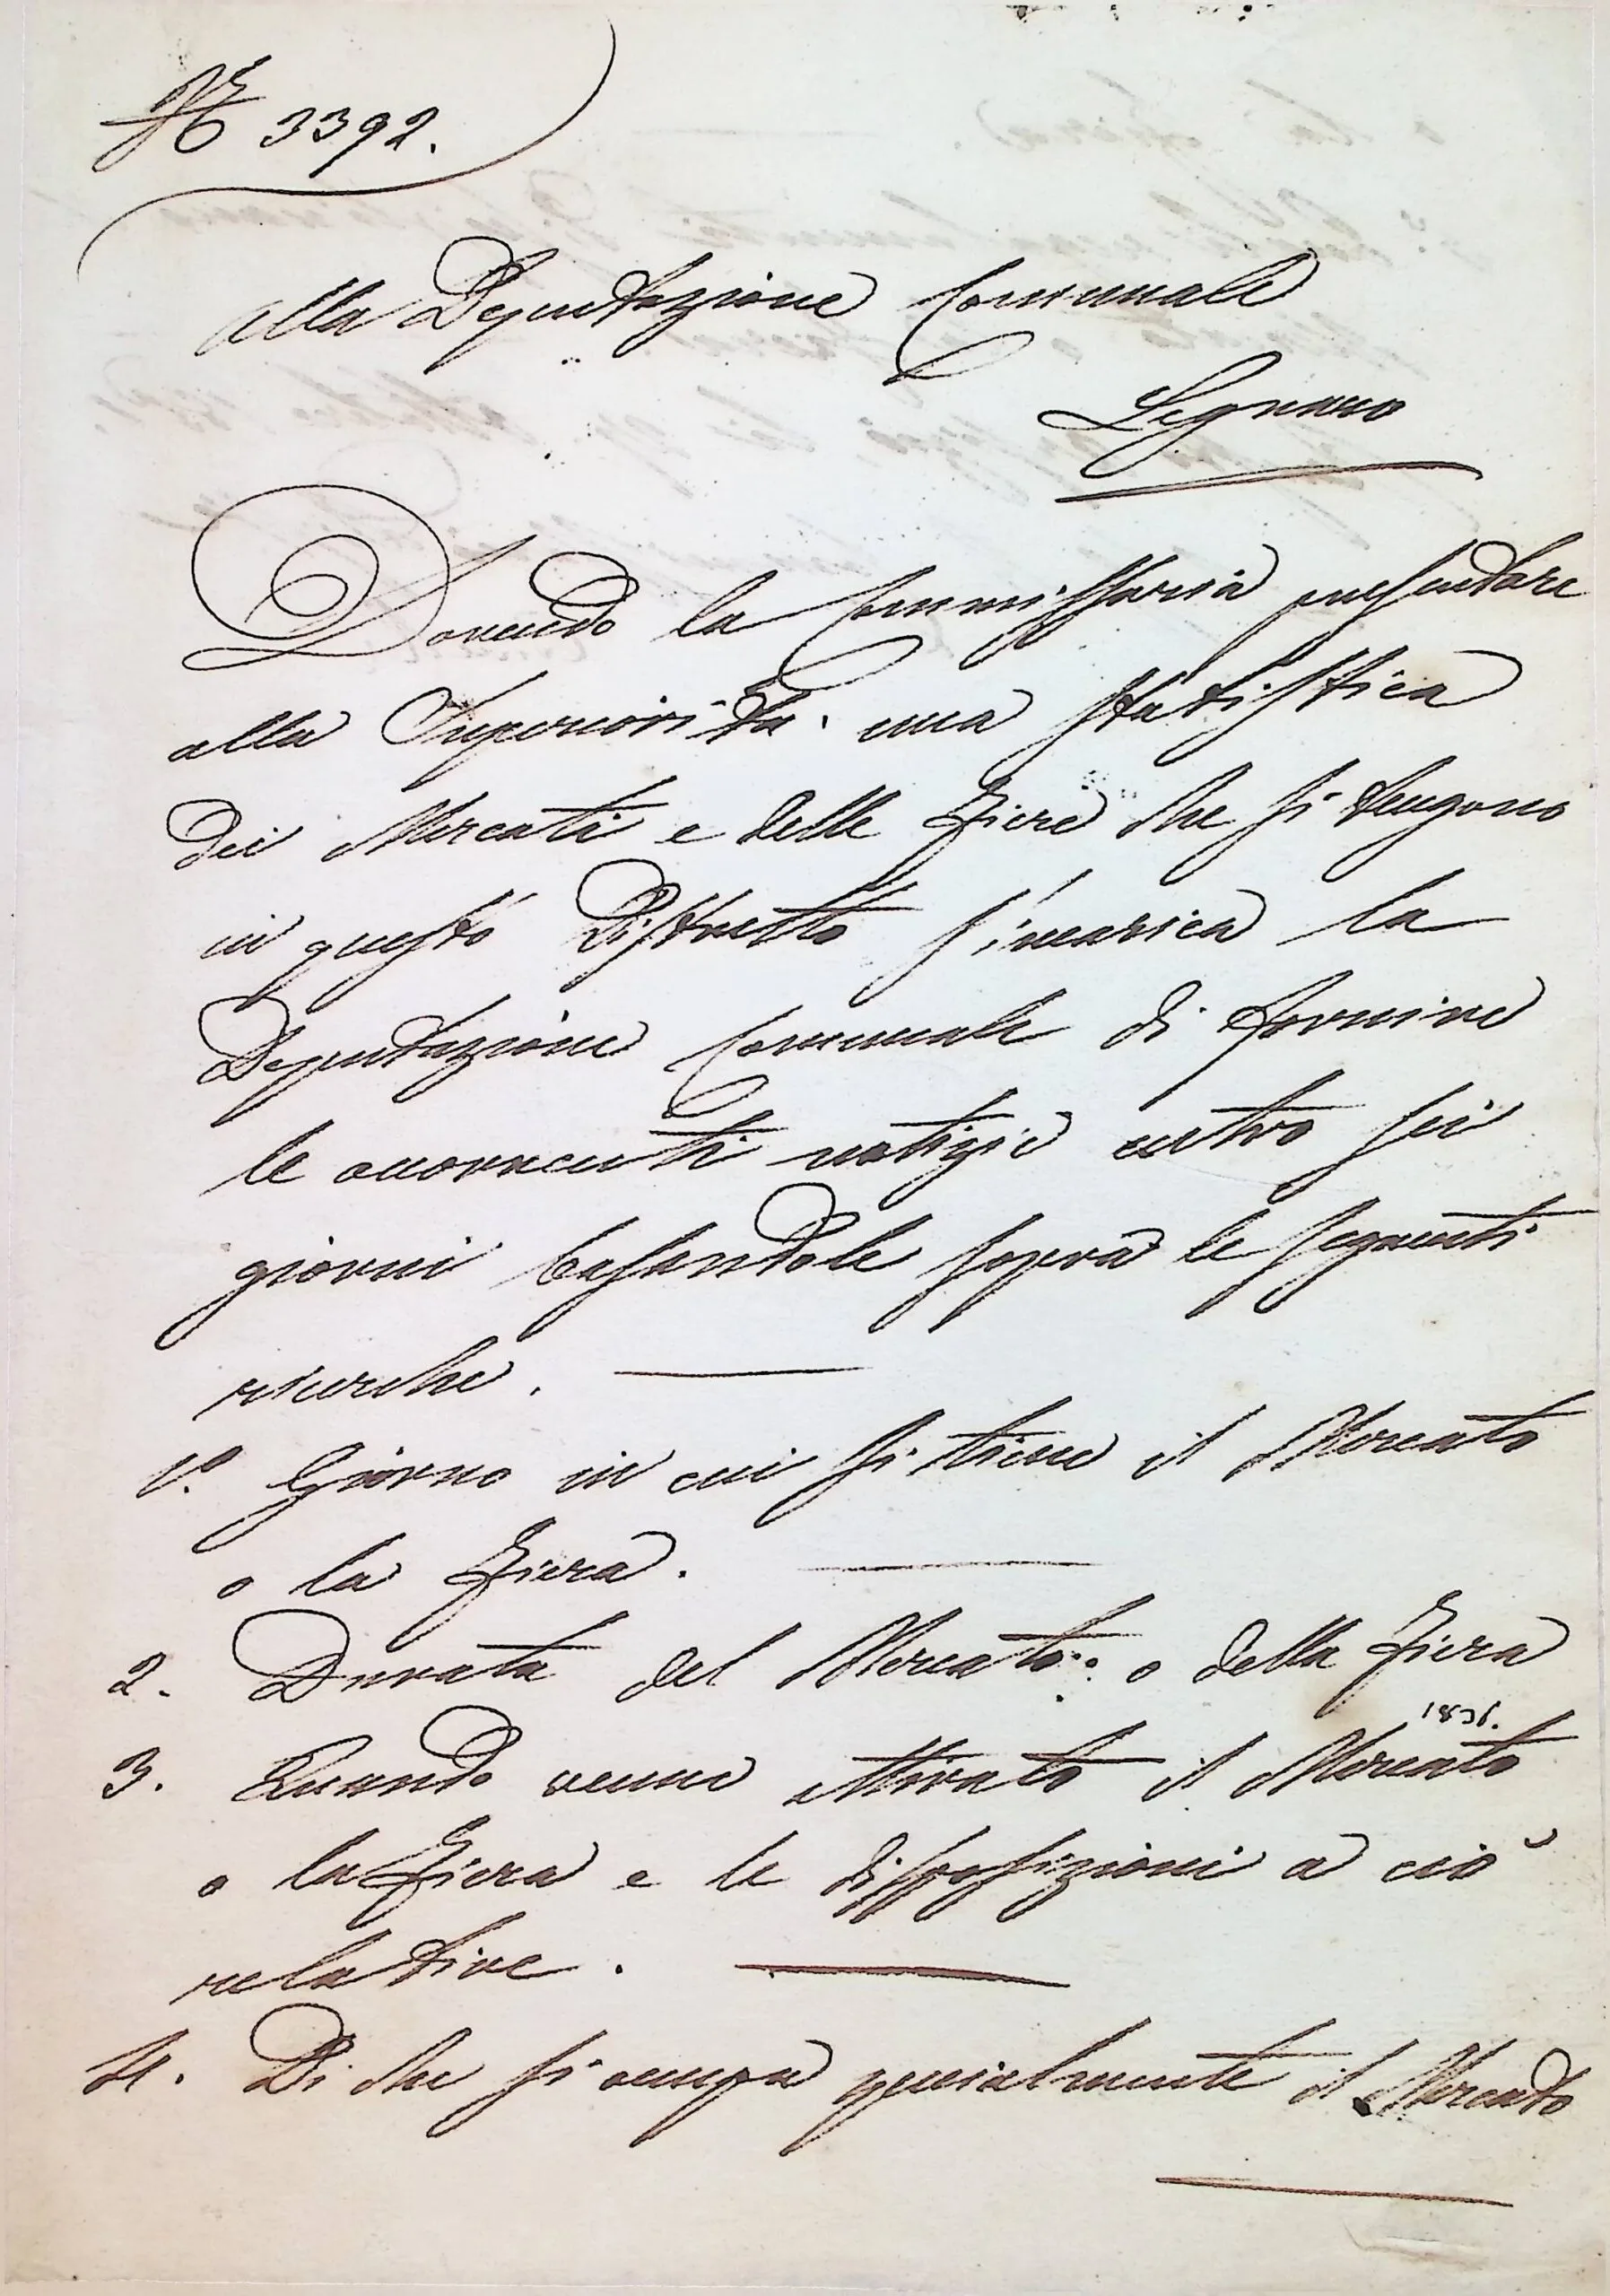 N.º 3392.
Alla Deputazione Comunale
Legnaro
Dovendo la Commissaria presentare
alla Superiorità una statistica
dei Mercati e delle Fiere che si tengono
in questo Distretto s'incarica la
Deputazione Comunale di fornire
le occorrenti notizie entro sei
giorni basandole sopra le seguenti
ricerche.
1.º Giorno in cui si tiene il Mercato
o la Fiera.
2. Durata del Mercato o della Fiera
3. Quando venne attivato il Mercato
o la Fiera e le disposizioni a ciò
relative.
4. Di che si occupa specialmente il Mercato